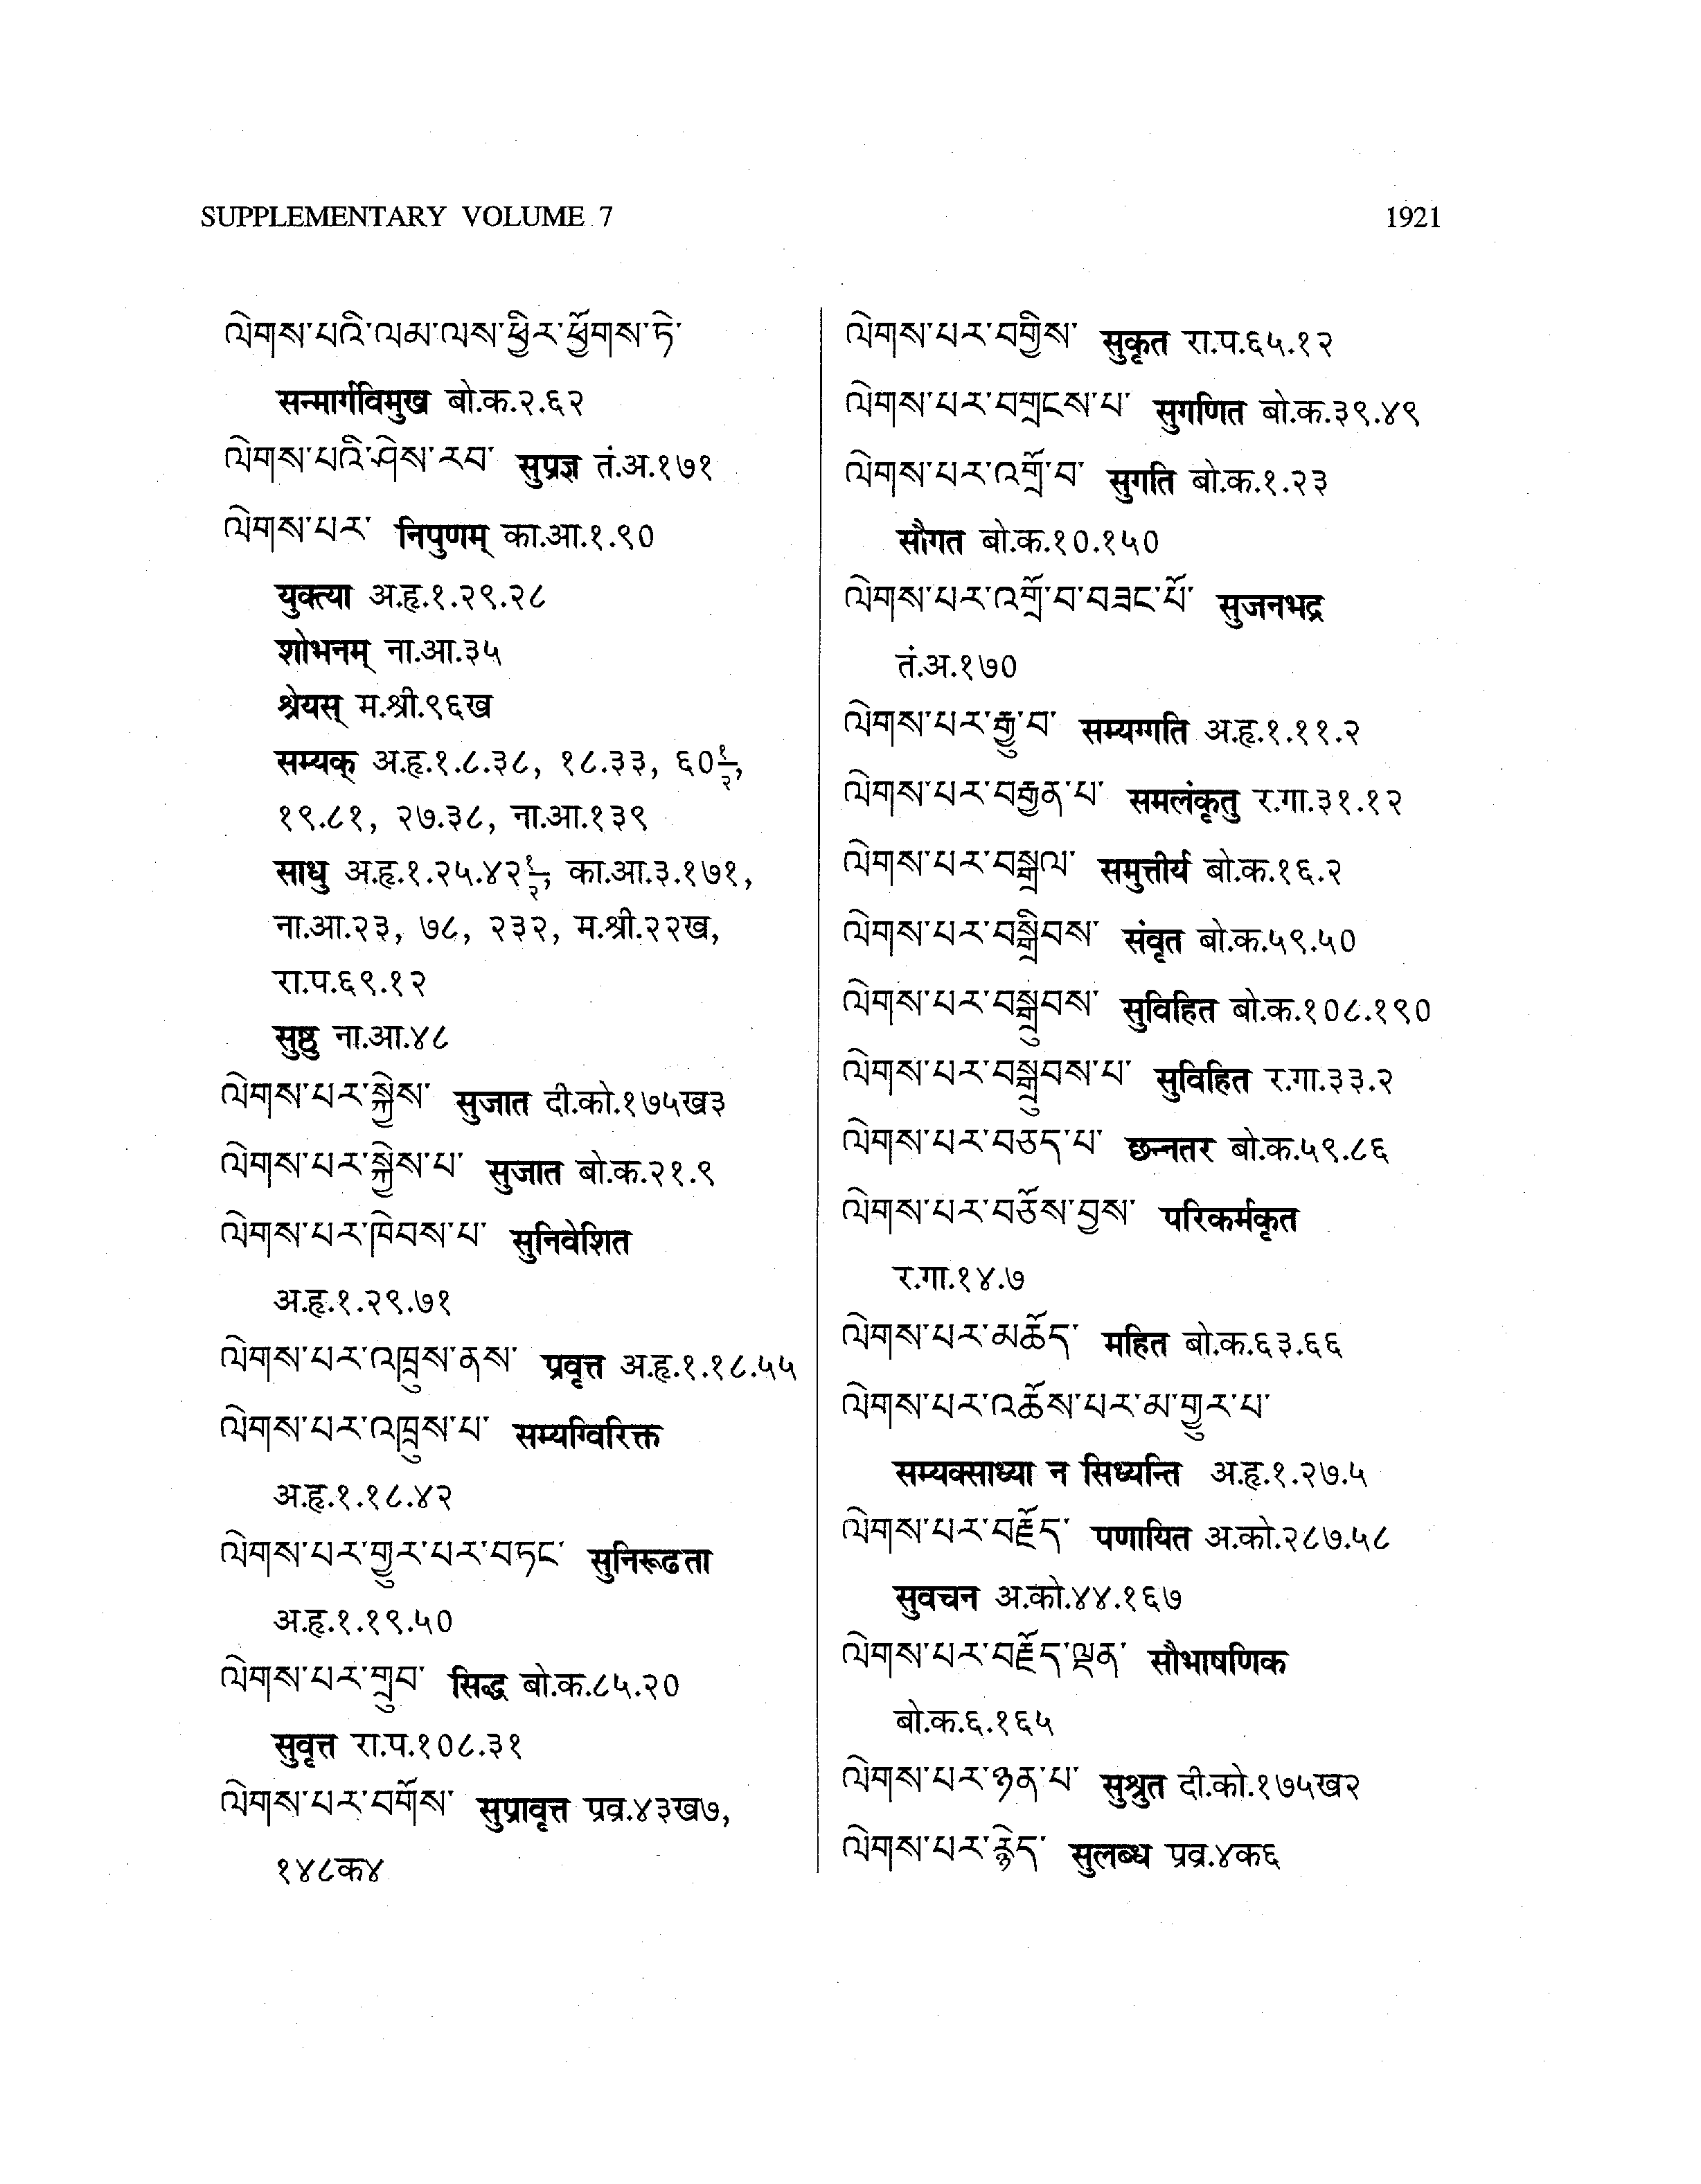 SUPPLEMENTARY VOLUME 7
1921
ལེགས་པའི་ལམ་ལས་ཕྱིར་ཕྱོགས་ཏེ་
सन्मार्गविमुख बो.क.२.६२
ལེགས་པའི་ཤེས་རབ་ सुप्रज्ञ तं.अ.१७१
ལེགས་པར་ निपुणम् का.आ.१.९०
युक्त्या अ.हृ.१.२९.२८
शोभनम् ना.आ.३५
श्रेयस् म.श्री.९६ख
सम्यक् अ.हृ.१.८.३८, १८.३३, ६०१/२,
१९.८१, २७.३८, ना.आ.१३९
साधु अ.हृ.१.२५.४२१/२, का.आ.३.१७१,
ना.आ.२३, ७८, २३२, म.श्री.२२ख,
रा.प.६९.१२
सुष्ठु ना.आ.४८
ལེགས་པར་སྐྱེས་ सुजात दी.को.१७५ख३
ལེགས་པར་སྐྱེས་པ་ सुजात बो.क.२१.९
ལེགས་པར་ཁེབས་པ་ सुनिवेशित
अ.हृ.१.२९.७१
ལེགས་པར་འཁྲུས་ནས་ प्रवृत्त अ.हृ.१.१८.५५
ལེགས་པར་འཁྲུས་པ་ सम्यग्विरिक्त
अ.हृ.१.१८.४२
ལེགས་པར་གྱུར་པར་བཏང་ सुनिरूढता
अ.हृ.१.१९.५०
ལེགས་པར་གྲུབ་ सिद्ध बो.क.८५.२०
सुवृत्त रा.प.१०८.३१
ལེགས་པར་བགོས་ सुप्रावृत्त प्रव्र.४३ख७,
१४८क४
ལེགས་པར་བགྱིས་ सुकृत रा.प.६५.१२
ལེགས་པར་བགྲངས་པ་ सुगणित बो.क.३९.४९
ལེགས་པར་འགྲོ་བ་ सुगति बो.क.१.२३
सौगत बो.क.१०.१५०
ལེགས་པར་འགྲོ་བ་བཟང་པོ་ सुजनभद्र
तं.अ.१७०
ལེགས་པར་རྒྱུ་བ་ सम्यग्गति अ.हृ.१.११.२
ལེགས་པར་བརྒྱན་པ་ समलंकृतु र.गा.३१.१२
ལེགས་པར་བསྒྲལ་ समुत्तीर्य बो.क.१६.२
ལེགས་པར་བསྒྲིབས་ संवृत बो.क.५९.५०
ལེགས་པར་བསྒྲུབས་ सुविहित बो.क.१०८.१९०
ལེགས་པར་བསྒྲུབས་པ་ सुविहित र.गा.३३.२
ལེགས་པར་བཅད་པ་ छन्नतर बो.क.५९.८६
ལེགས་པར་བཅོས་བྱས་ परिकर्मकृत
र.गा.१४.७
ལེགས་པར་མཆོད་ महित बो.क.६३.६६
ལེགས་པར་འཆོས་པར་མ་གྱུར་པ་
सम्यक्साध्या न सिध्यन्ति अ.हृ.१.२७.५
ལེགས་པར་བརྗོད་ पणायित अ.को.२८७.५८
सुवचन अ.को.४४.१६७
ལེགས་པར་བརྗོད་ལྡན་ सौभाषणिक
बो.क.६.१६५
ལེགས་པར་ཉན་པ་ सुश्रुत दी.को.१७५ख२
ལེགས་པར་རྙེད་ सुलब्ध प्रव्र.४क६